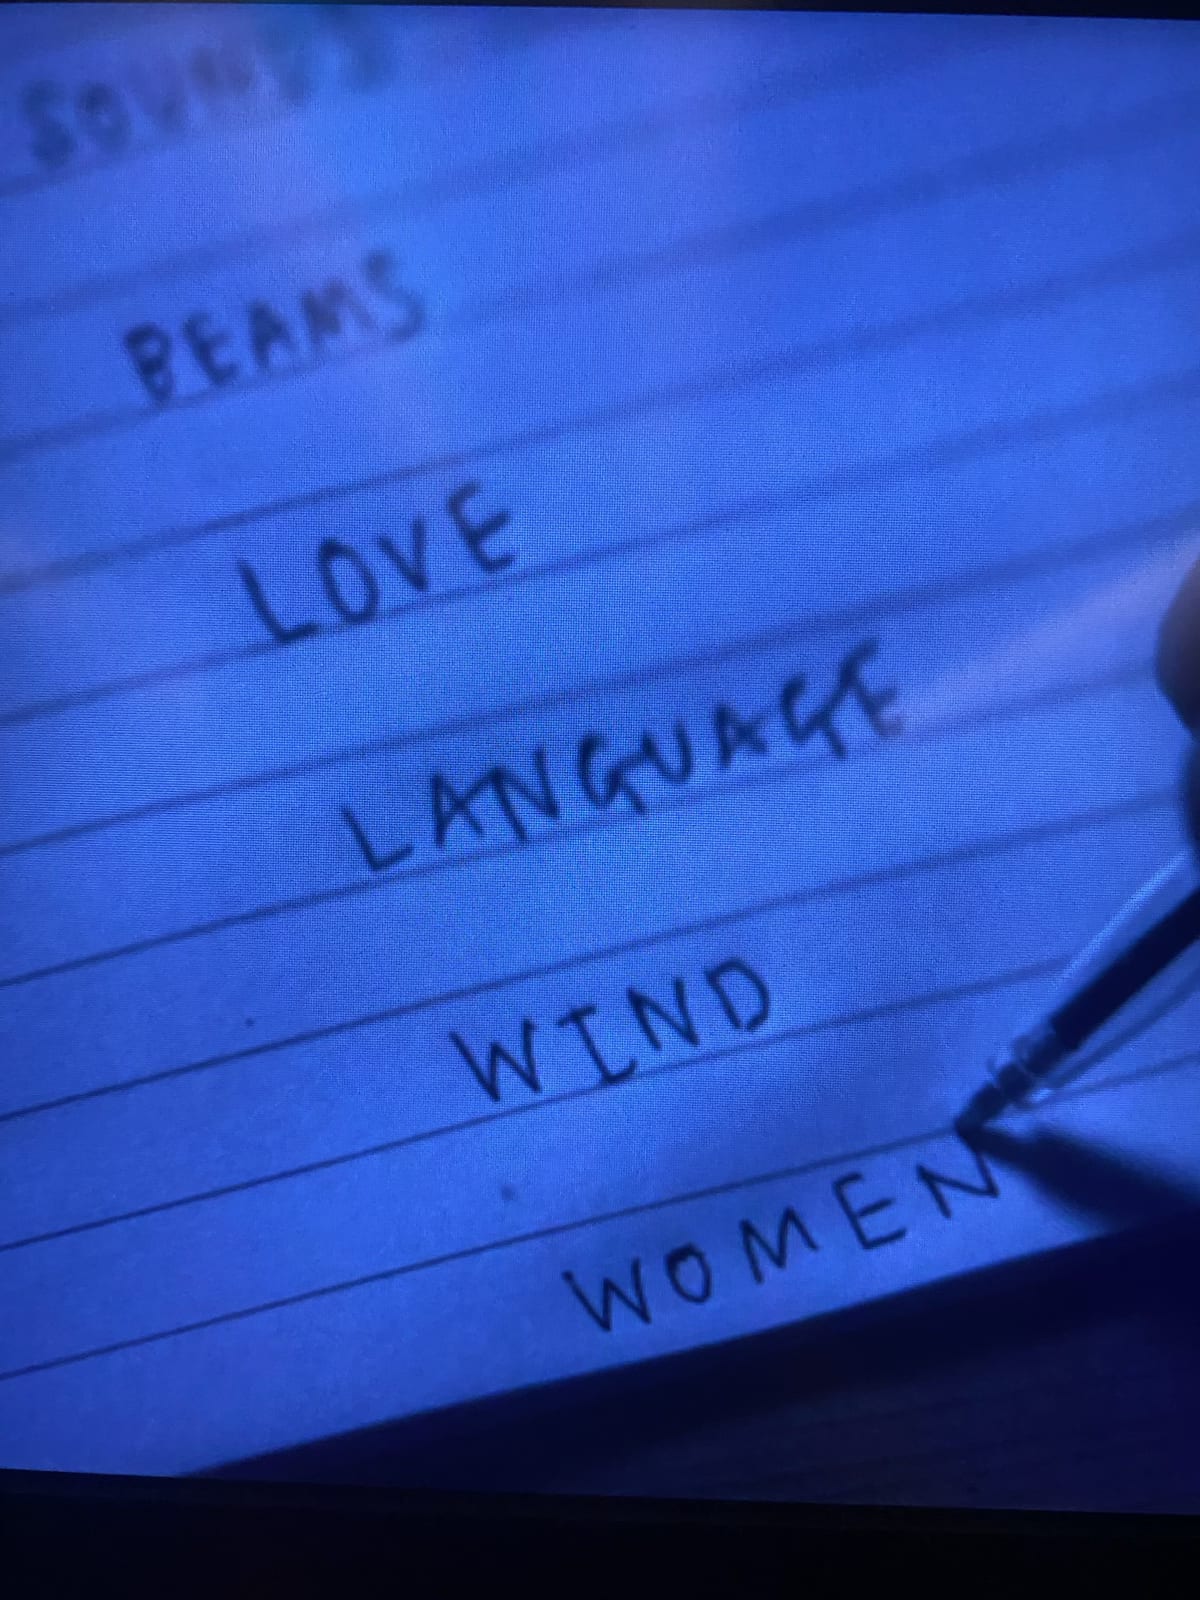 SOUNDS
BEAMS
LOVE
LANGUAGE
WIND
WOMEN